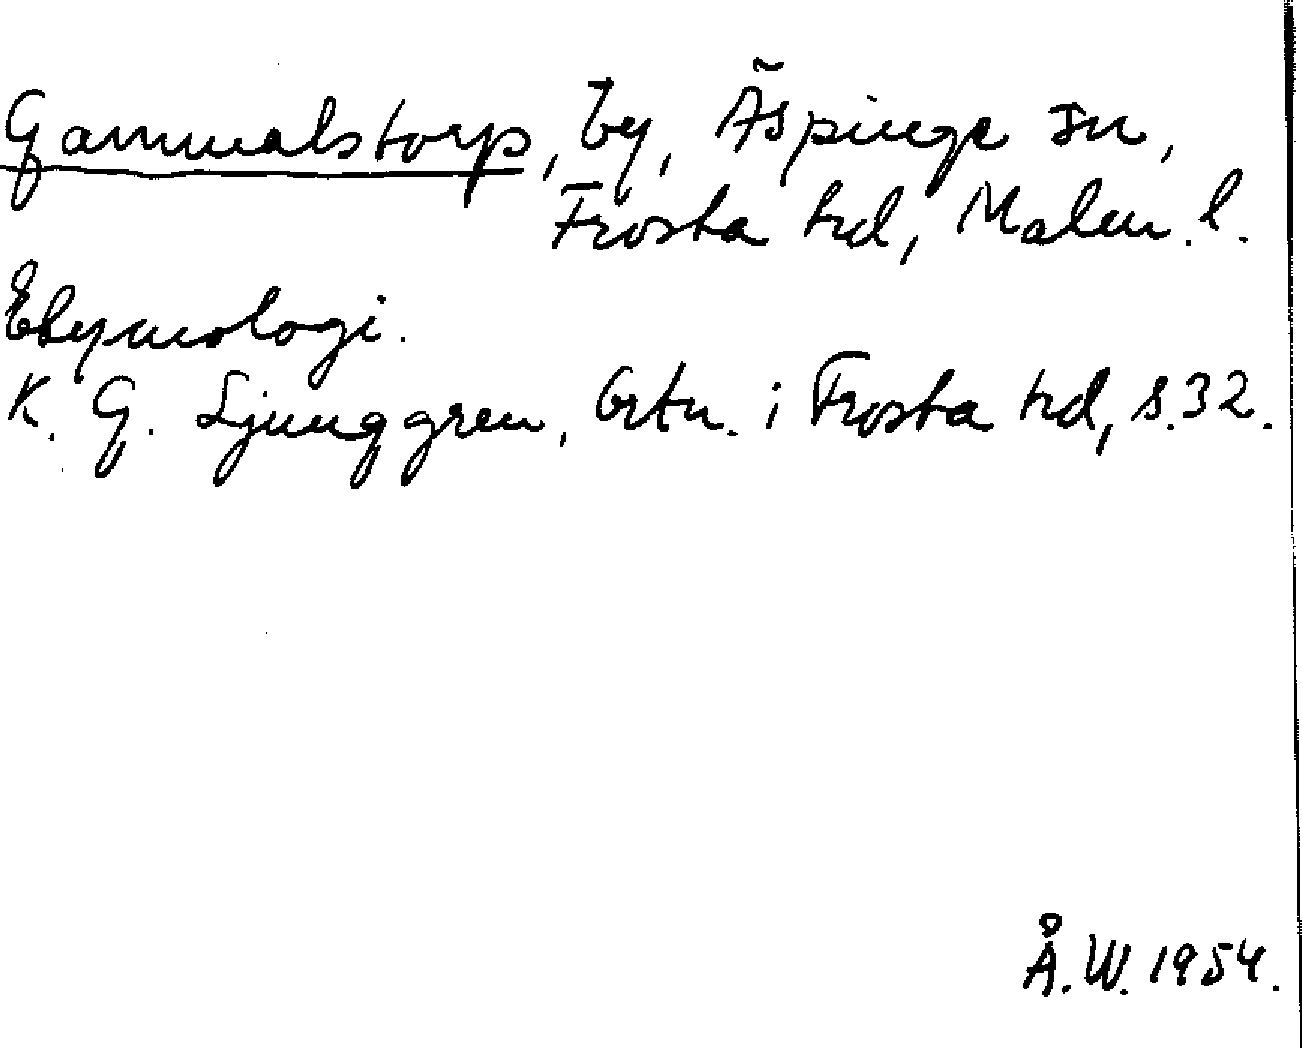 Gammalstorp, by, Äspinge sn,
Frosta hd, Malm. l.
Etymologi.
K. G. Ljunggren, Ortn. i Frosta hd, s. 32.
Å. W. 1954.